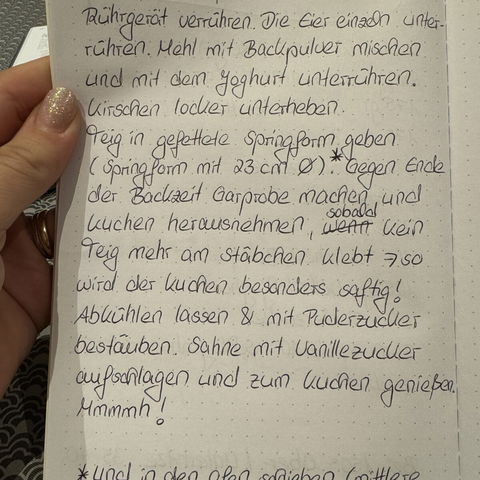 Rührgerät verrühren. Die Eier einzeln unter-
rühren. Mehl mit Backpulver mischen
und mit dem Yoghurt unterrühren.
Kirschen locker unterheben.
Teig in gefettete Springform geben
(Springform mit 23 cm Ø).* Gegen Ende
der Backzeit Garprobe machen und
Kuchen herausnehmen, wenn sobald kein
Teig mehr am Stäbchen klebt → so
wird der Kuchen besonders saftig!
Abkühlen lassen & mit Puderzucker
bestäuben. Sahne mit Vanillezucker
aufschlagen und zum Kuchen genießen.
Mmmmh!
*und in den Ofen schieben (mittlere